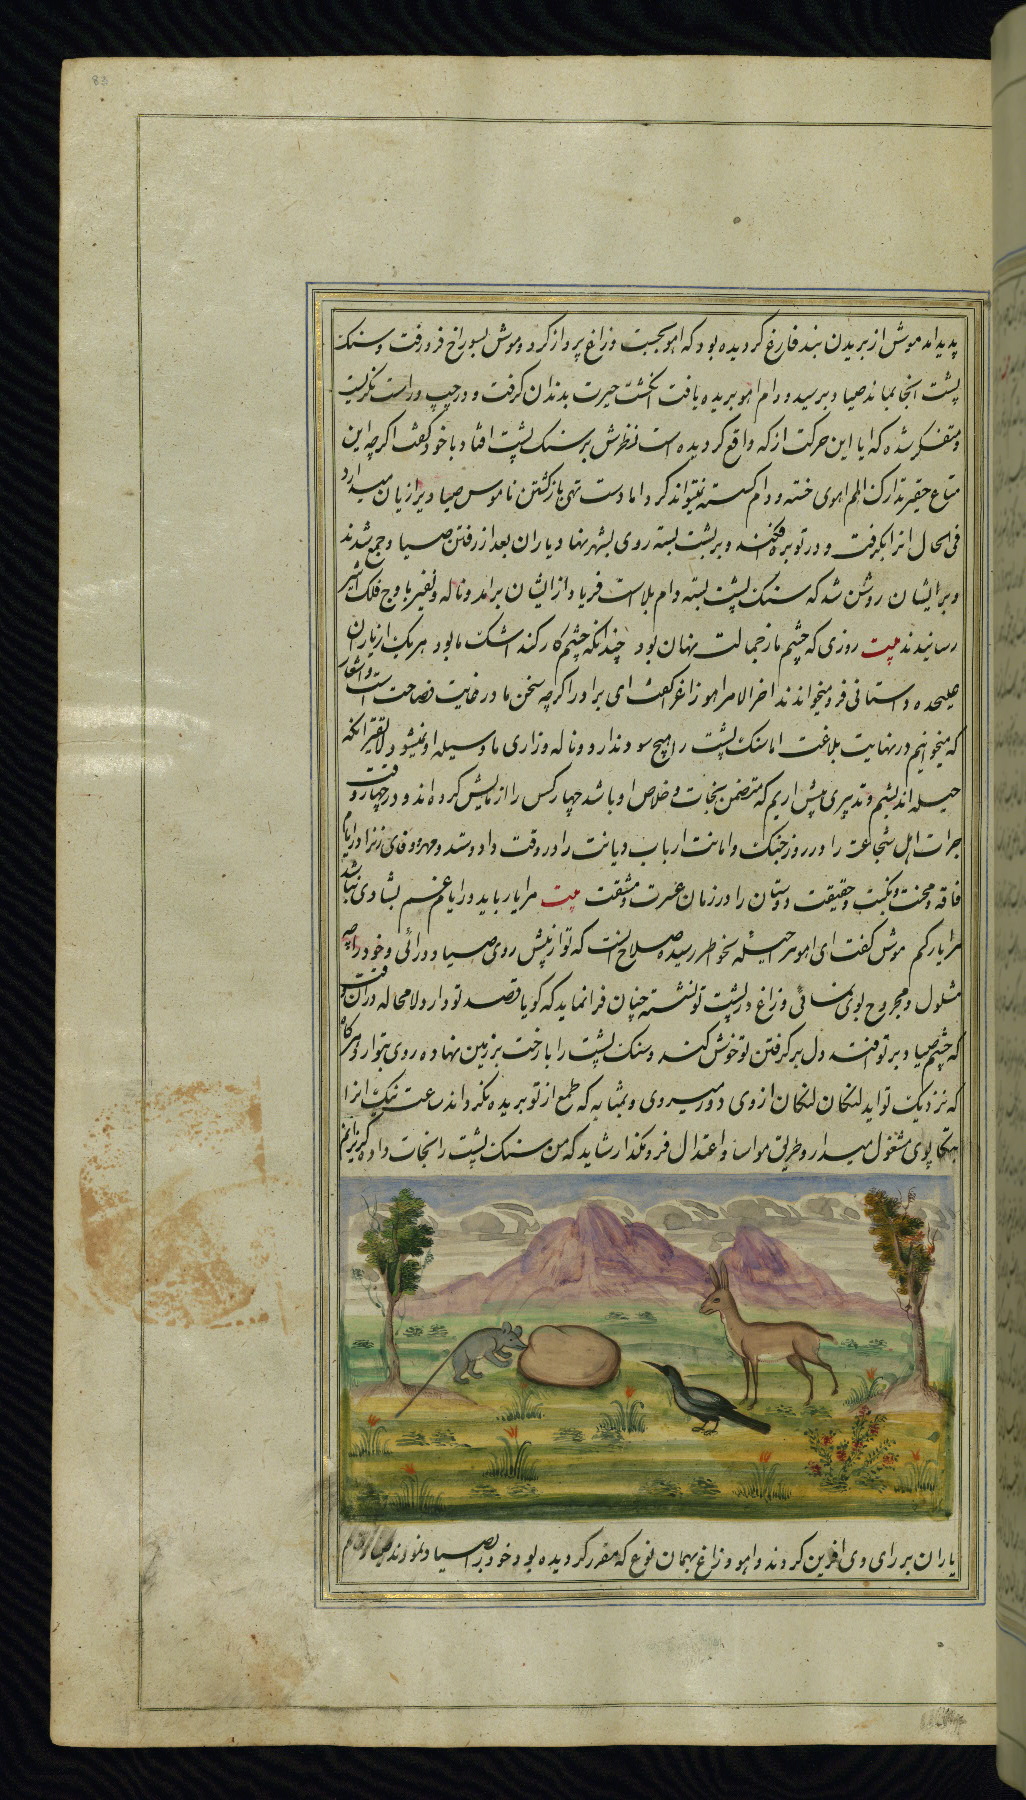 83
پدید امد موش از بریدن بند فارغ کردیده بود که اهو بجست و زاغ پرواز کرد و موش بسوراخ فرو رفت و سنک
پشت انجا بماند صیاد برسید و دام اهو بریده یافت انکشت حیرت بدندان کرفت و در چپ و راست نکریست
و متفکر شده که ایا این حرکت از که واقع کردیده است نظرش بر سنک پشت افتاد با خود کفت اکرچه این
متاع حقیر تدارک الم اهوی خسته و دام کسسته نمیتواند کرد اما دست تهی بازکشتن ناموس صیاد را زیان میدارد
فی الحال انرا بکرفت و در توبره افکند و بر پشت بسته روی بشهر نهاد یاران بعد از رفتن صیاد جمع شدند
و بر ایشان روشن شد که سنک پشت بسته دام بلاست فریاد از ایشان برامد و ناله و نفیر باوج فلک اثیر
رسانیدند بیت روزی که چشم ما ز جمالت نهان بود چندانکه چشم کار کند اشک ما بود هریک از یاران
علیحده داستانی فرو میخواندند اخر الامر اهو زاغ را کفت ای برادر اکرچه سخن ما در غایت فصاحت است و اشعار
که میخوانیم در نهایت بلاغت اما سنک پشت را هیچ سود ندارد و ناله و زاری ما وسیله او نمیشود لایق تر انکه
حیله اندیشیم و تدبیری پیش اریم که متضمن نجات و خلاص او باشد چهار کس را ازمایش کرده اند در چهار وقت
جرات اهل شجاعت را در روز جنک و امانت ارباب دیانت را در وقت داد و ستد و مهر و وفای زن را در ایام
فاقه و محنت و نکبت و حقیقت دوستان را در زمان عسرت و مشقت بیت مرا یار باید در ایام غم بشادی نباشد
مرا یار کم موش کفت ای اهو مرا حیله بخاطر رسیده صلاح انست که تو از پیش روی صیاد درائی و خود را چه
مشلول و مجروح بوی نمائی و زاغ در پشت تو نشسته چنان فرانماید که کویا قصد تو دارد لامحاله در ان وقت
که چشم صیاد بر تو افتد دل بر کرفتن تو خوش کند و سنک پشت را با رخت بر زمین نهاده روی بتو ارد هرکاه
که نزدیک تو اید لنکان لنکان از وی دور میروی و نه بمثابه که طمع از تو بریده نکرداند ساعت نیک انرا
بتکاپوی مشغول میدار و طریق مواسا و اعتدال فرو مکذار شاید که من سنک پشت را نجات داده کریزانم
یاران بر رای وی افرین کردند و اهو و زاغ بهمان نوع که مقرر کردیده بود خود را بصیاد نمودند صیاد